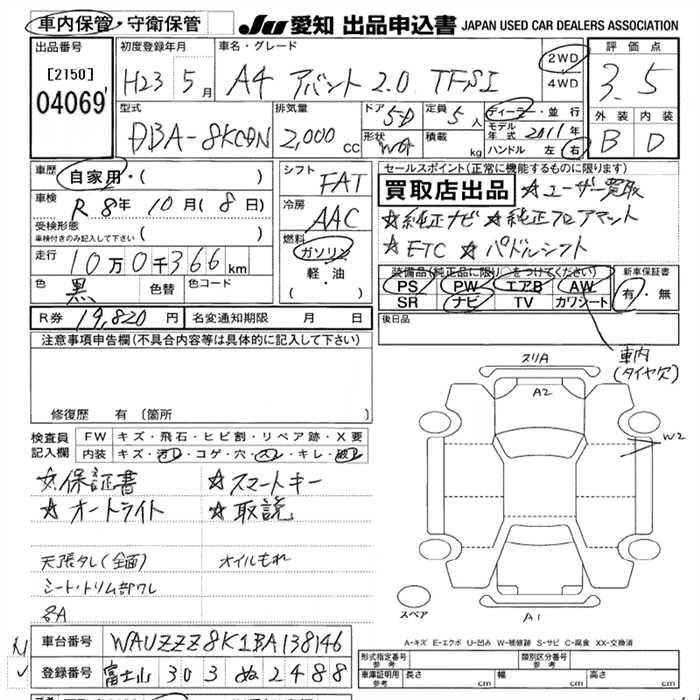 車内保管・守衛保管
JU 愛知 出品申込書 JAPAN USED CAR DEALERS ASSOCIATION
出品番号
[2150]
04069
初度登録年月
H23 5月
車名・グレード
A4 アバント 2.0 TFSI
2WD
4WD
評価点
3.5
外装 内装
B D
型式
DBA-8KCDN
排気量
2,000 cc
ドア
5D
形状
WGN
定員
5人
積載
kg
ディーラー・並行
モデル年式 2011年
ハンドル 左 右
車歴
自家用・( )
車検
R 8年 10月 (8日)
受検形態
車検付きのみ記入して下さい ( )
走行
10万0千366 km
色
黒
色替
色コード
R券 19,820円
名変通知期限 月 日
シフト
FAT
冷房
AAC
燃料
ガソリン
軽・油
( ・ )
セールスポイント(正常に機能するものに限ります)
買取店出品 ☆ユーザー買取
☆純正ナビ ☆純正フロアマット
☆ETC ☆パドルシフト
装備品(純正品に限り○をつけてください)
PS PW エアB AW
SR ナビ TV カワシート
新車保証書
有・無
後日品
車内
(タイヤ欠)
注意事項申告欄(不具合内容等は具体的に記入して下さい)
修復歴 有 (箇所
検査員記入欄
FW キズ・飛石・ヒビ割・リペア跡・X要
内装 キズ・汚れ・コゲ・穴・スレ・キレ・破れ
☆保証書 ☆スマートキー
☆オートライト ☆取説
天張タレ(全面) オイルもれ
シート・トリム部ワレ
各A
スリA
A2
W2
A1
スペア
A-キズ E-エクボ U-凹み W-補修跡 S-サビ C-腐食 XX-交換済
車台番号 WAUZZZ8K1BA138146
登録番号 富士山 303 ぬ 2488
型式指定番号 参考
類別区分番号 参考
車庫証明用 参考
長さ cm
幅 cm
高さ cm